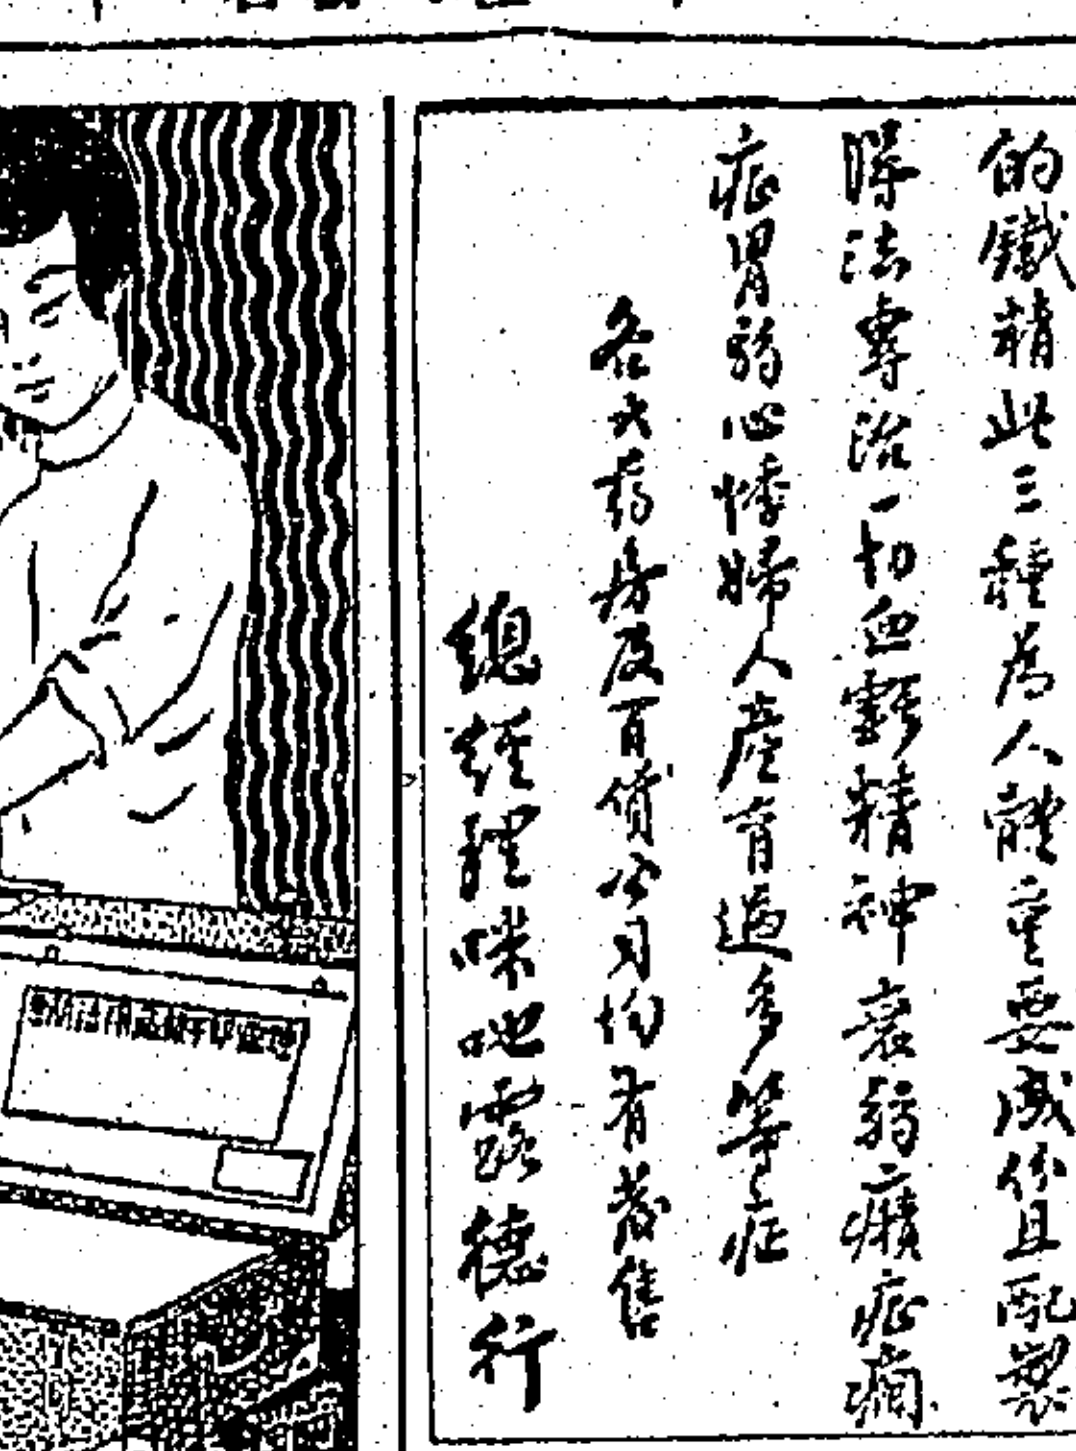 的鐵精此三種為人體重要成份且配製
得法專治一切血虧精神衰弱癲症癇
症胃弱心悸婦人產育過多等症
各大药房及百貨公司均有發售
總經理咪吔露德行